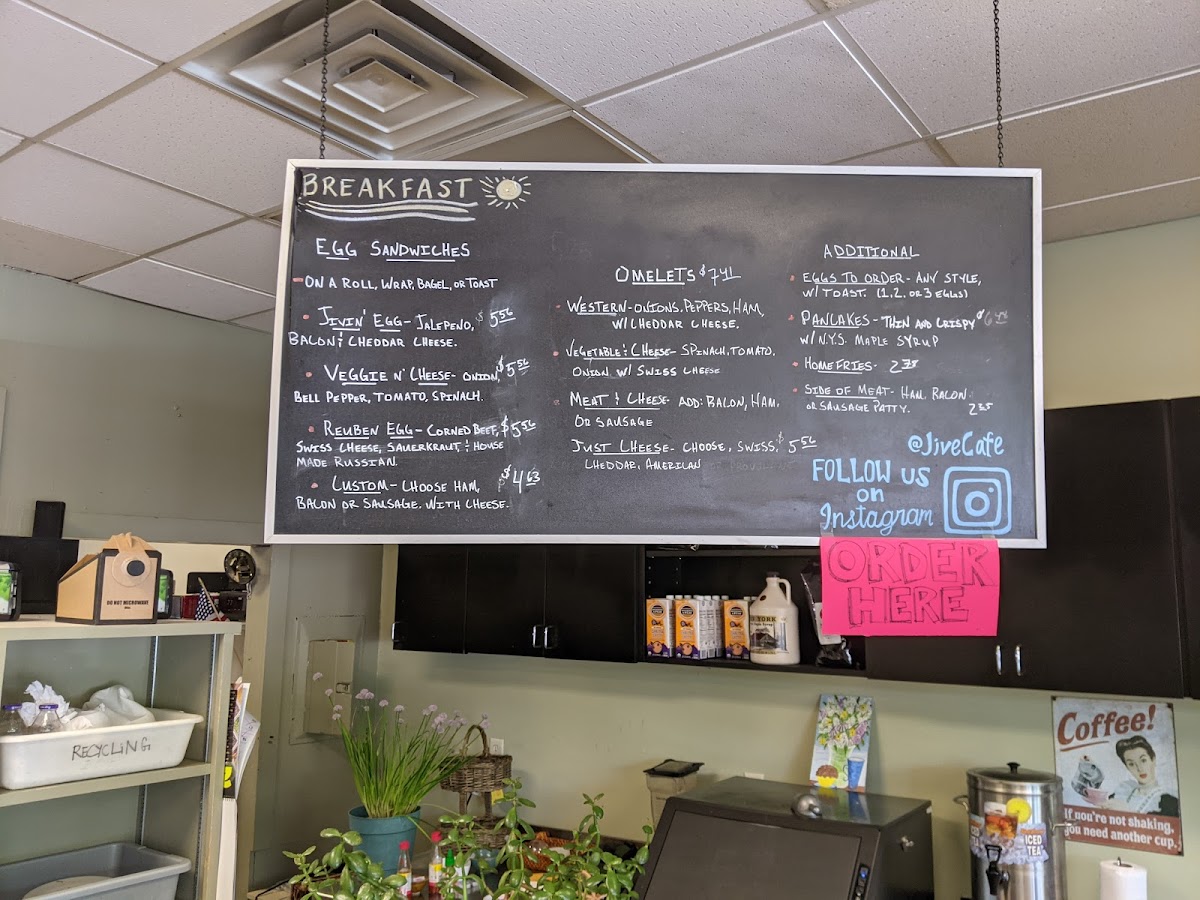 BREAKFAST
EGG SANDWICHES
- ON A ROLL, WRAP, BAGEL, OR TOAST
- JIVIN' EGG - JALEPENO, $5.56
BACON & CHEDDAR CHEESE.
- VEGGIE N' CHEESE - ONION, $5.56
BELL PEPPER, TOMATO, SPINACH.
- REUBEN EGG - CORNED BEEF, $5.56
SWISS CHEESE, SAUERKRAUT, & HOUSE
MADE RUSSIAN.
- CUSTOM - CHOOSE HAM, $4.63
BACON OR SAUSAGE. WITH CHEESE.
OMELETS $7.41
- WESTERN - ONIONS, PEPPERS, HAM,
W/ CHEDDAR CHEESE.
- VEGETABLE & CHEESE - SPINACH, TOMATO,
ONION W/ SWISS CHEESE
- MEAT & CHEESE - ADD: BACON, HAM,
OR SAUSAGE
JUST CHEESE - CHOOSE, SWISS, $5.56
CHEDDAR, AMERICAN
ADDITIONAL
- EGGS TO ORDER - ANY STYLE,
W/ TOAST. (1, 2, OR 3 EGGS)
- PANCAKES - THIN AND CRISPY
W/ N.Y.S. MAPLE SYRUP
- HOMEFRIES -
- SIDE OF MEAT - HAM, BACON
OR SAUSAGE PATTY.
@JiveCafe
FOLLOW US
on
Instagram
ORDER
HERE
DO NOT MICROWAVE
RECYCLING
Coffee!
If you're not shaking,
you need another cup.
ICED
TEA